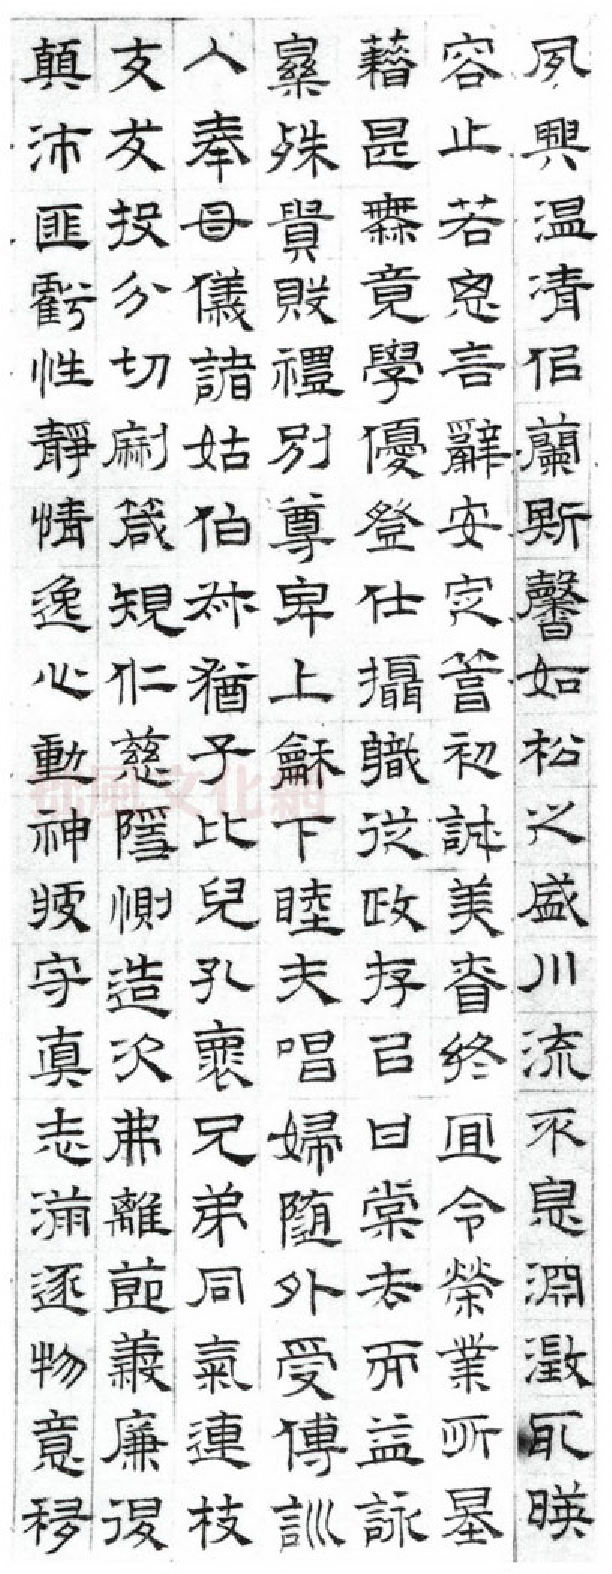 夙興温清佀蘭斯馨如松之盛川流不息淵澂取暎
容止若恖言辭安定篤初誠美昚終宜令榮業所基
藉甚無竟學優登仕攝職從政存㠯甘棠去而益詠
樂殊貴賤禮別尊卑上龢下睦夫唱婦隨外受傅訓
入奉母儀諸姑伯叔猶子比兒孔褱兄弟同氣連枝
交友投分切磨箴規仁慈隱惻造次弗離節義廉退
顛沛匪虧性靜情逸心動神疲守真志滿逐物意移
風文化網